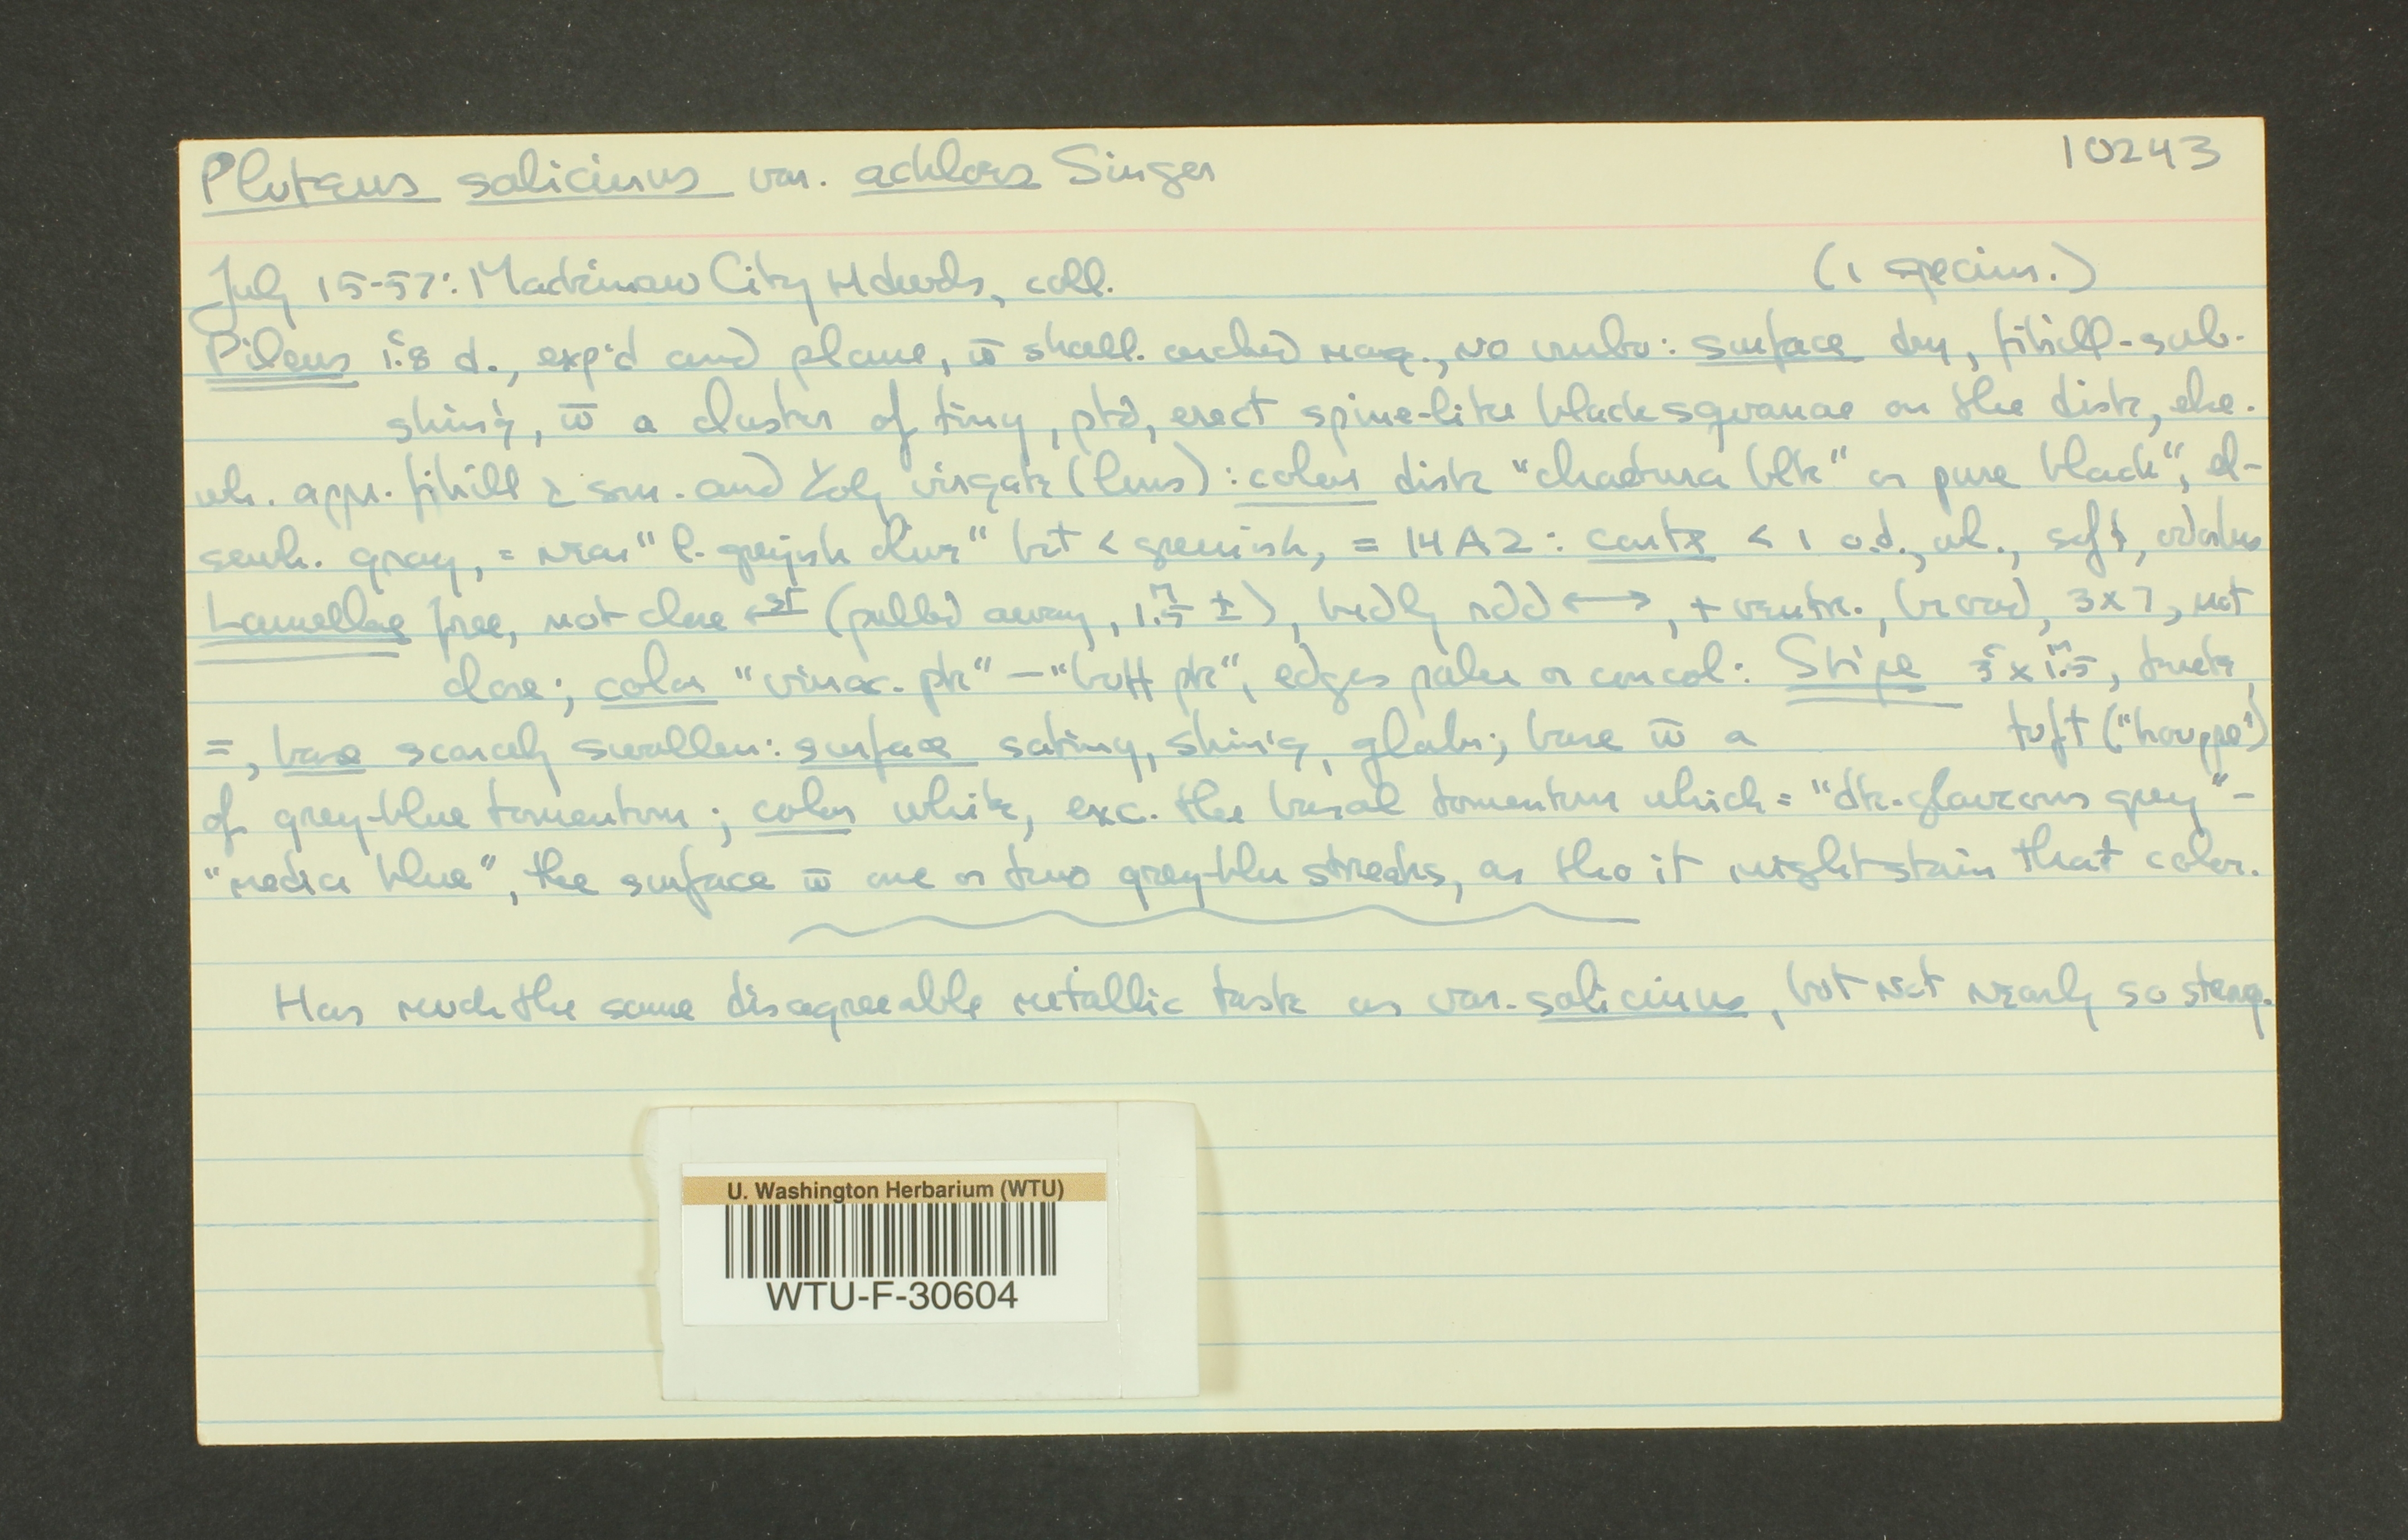 Pluteus salicinus var. achloes Singer 10243
July 15-57: Mackinaw City Hdwds, coll. (1 specim.)
Pileus 1.8 d., exp'd and plane, w̄ shall. arched marg., no umbo: surface dry, fibrill-sub-
shin'g, w̄ a cluster of tiny, ptd, erect spine-like black squamae on the disk, else-
wh. appr. fibrill & sm. and virgate (lens): color disk "chaetura blk" or pure black", el-
sewh. gray, = near "l. grayish olive" but < greenish, = 14A2: context < 1 o.d., wh., soft, odorless
Lamellae free, not close st (pulled away, 1.5 ±), brdly rdd ⟷, + ventr., broad, 3x7, not
close; color "vinac. pk" – "buff pk", edges paler or concol: Stipe 3ᶜ x 1.5ᵐ,
=, base scarcely swollen: surface satiny, shin'g, glabr; base w̄ a tuft ("houppe")
of grey-blue tomentum; color white, exc. the basal tomentum which = "dk. glaucous grey" –
"medici blue", the surface w̄ one or two grey-blu streaks, as tho it might stain that color.
Has much the same disagreeable metallic taste as var. salicinus, but not nearly so strong.
U. Washington Herbarium (WTU)
WTU-F-30604